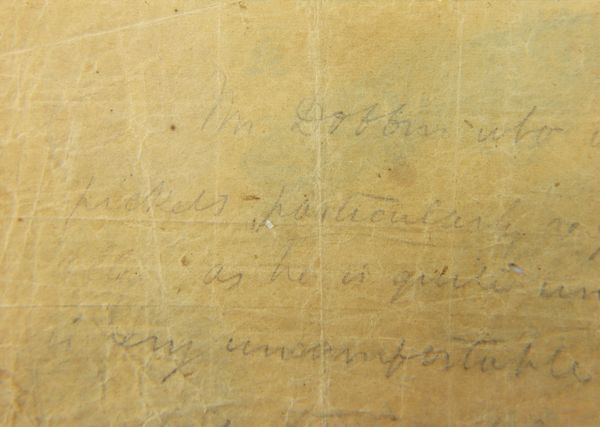 Mr. Dobbin who
pickets, particularly
as he is quite un
is very uncomfortable